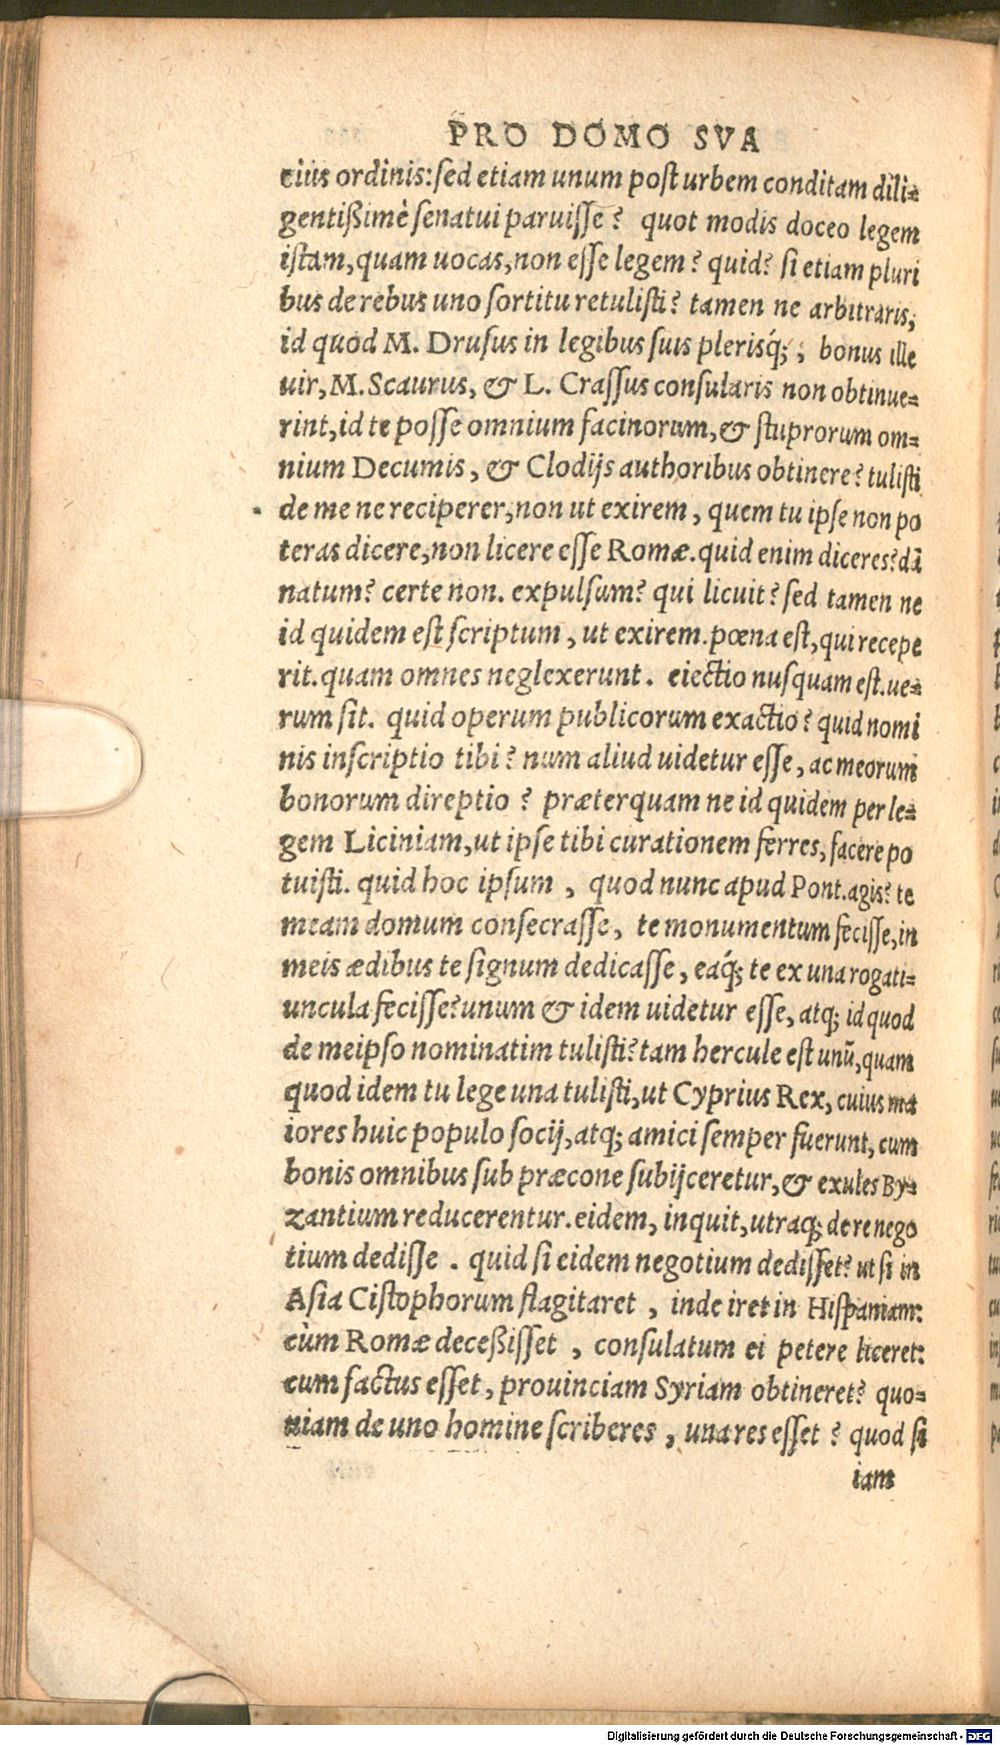 PRO DOMO SVA
eius ordinis: sed etiam unum post urbem conditam dili-
gentißimè senatui paruisse? quot modis doceo legem
istam, quam uocas, non esse legem? quid? si etiam pluri
bus de rebus uno sortitu retulisti? tamen ne arbitraris,
id quod M. Drusus in legibus suis plerisq́;, bonus ille
uir, M. Scaurus, & L. Crassus consularis non obtinue-
rint, id te posse omnium facinorum, & stuprorum om-
nium Decumis, & Clodijs authoribus obtinere? tulisti
de me ne reciperer, non ut exirem, quem tu ipse non po
teras dicere, non licere esse Romæ. quid enim diceres? dã
natum? certe non. expulsum? qui licuit? sed tamen ne
id quidem est scriptum, ut exirem. pœna est, qui recepe
rit. quam omnes neglexerunt. eiectio nusquam est. ue-
rum sit. quid operum publicorum exactio? quid nomi
nis inscriptio tibi? num aliud uidetur esse, ac meorum
bonorum direptio? præterquam ne id quidem per le-
gem Liciniam, ut ipse tibi curationem ferres, facere po
tuisti. quid hoc ipsum, quod nunc apud Pont. agis? te
meam domum consecrasse, te monumentum fecisse, in
meis ædibus te signum dedicasse, eaq́; te ex una rogati-
uncula fecisse? unum & idem uidetur esse, atq; id quod
de meipso nominatim tulisti? tam hercule est unũ, quam
quod idem tu lege una tulisti, ut Cyprius Rex, cuius ma
iores huic populo socij, atq; amici semper fuerunt, cum
bonis omnibus sub præcone subijceretur, & exules By-
zantium reducerentur. eidem, inquit, utraq; de re nego
tium dedisse. quid si eidem negotium dedisset? ut si in
Asia Cistophorum flagitaret, inde iret in Hispaniam:
cùm Romæ deceßisset, consulatum ei petere liceret:
cum factus esset, prouinciam Syriam obtineret? quo-
niam de uno homine scriberes, una res esset? quod si
iam
Digitalisierung gefördert durch die Deutsche Forschungsgemeinschaft - DFG